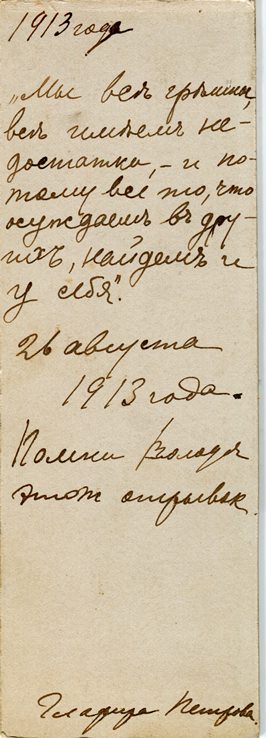 1913 года
„Мы всѣ грѣшны,
всѣ имѣемъ не-
достатки, – и по-
тому всё то, что
осуждаемъ въ дру-
гихъ, найдемъ и
у себя".
26 августа
1913 года.
Помни Володя
этот отрывок.
Гладира Петрова.